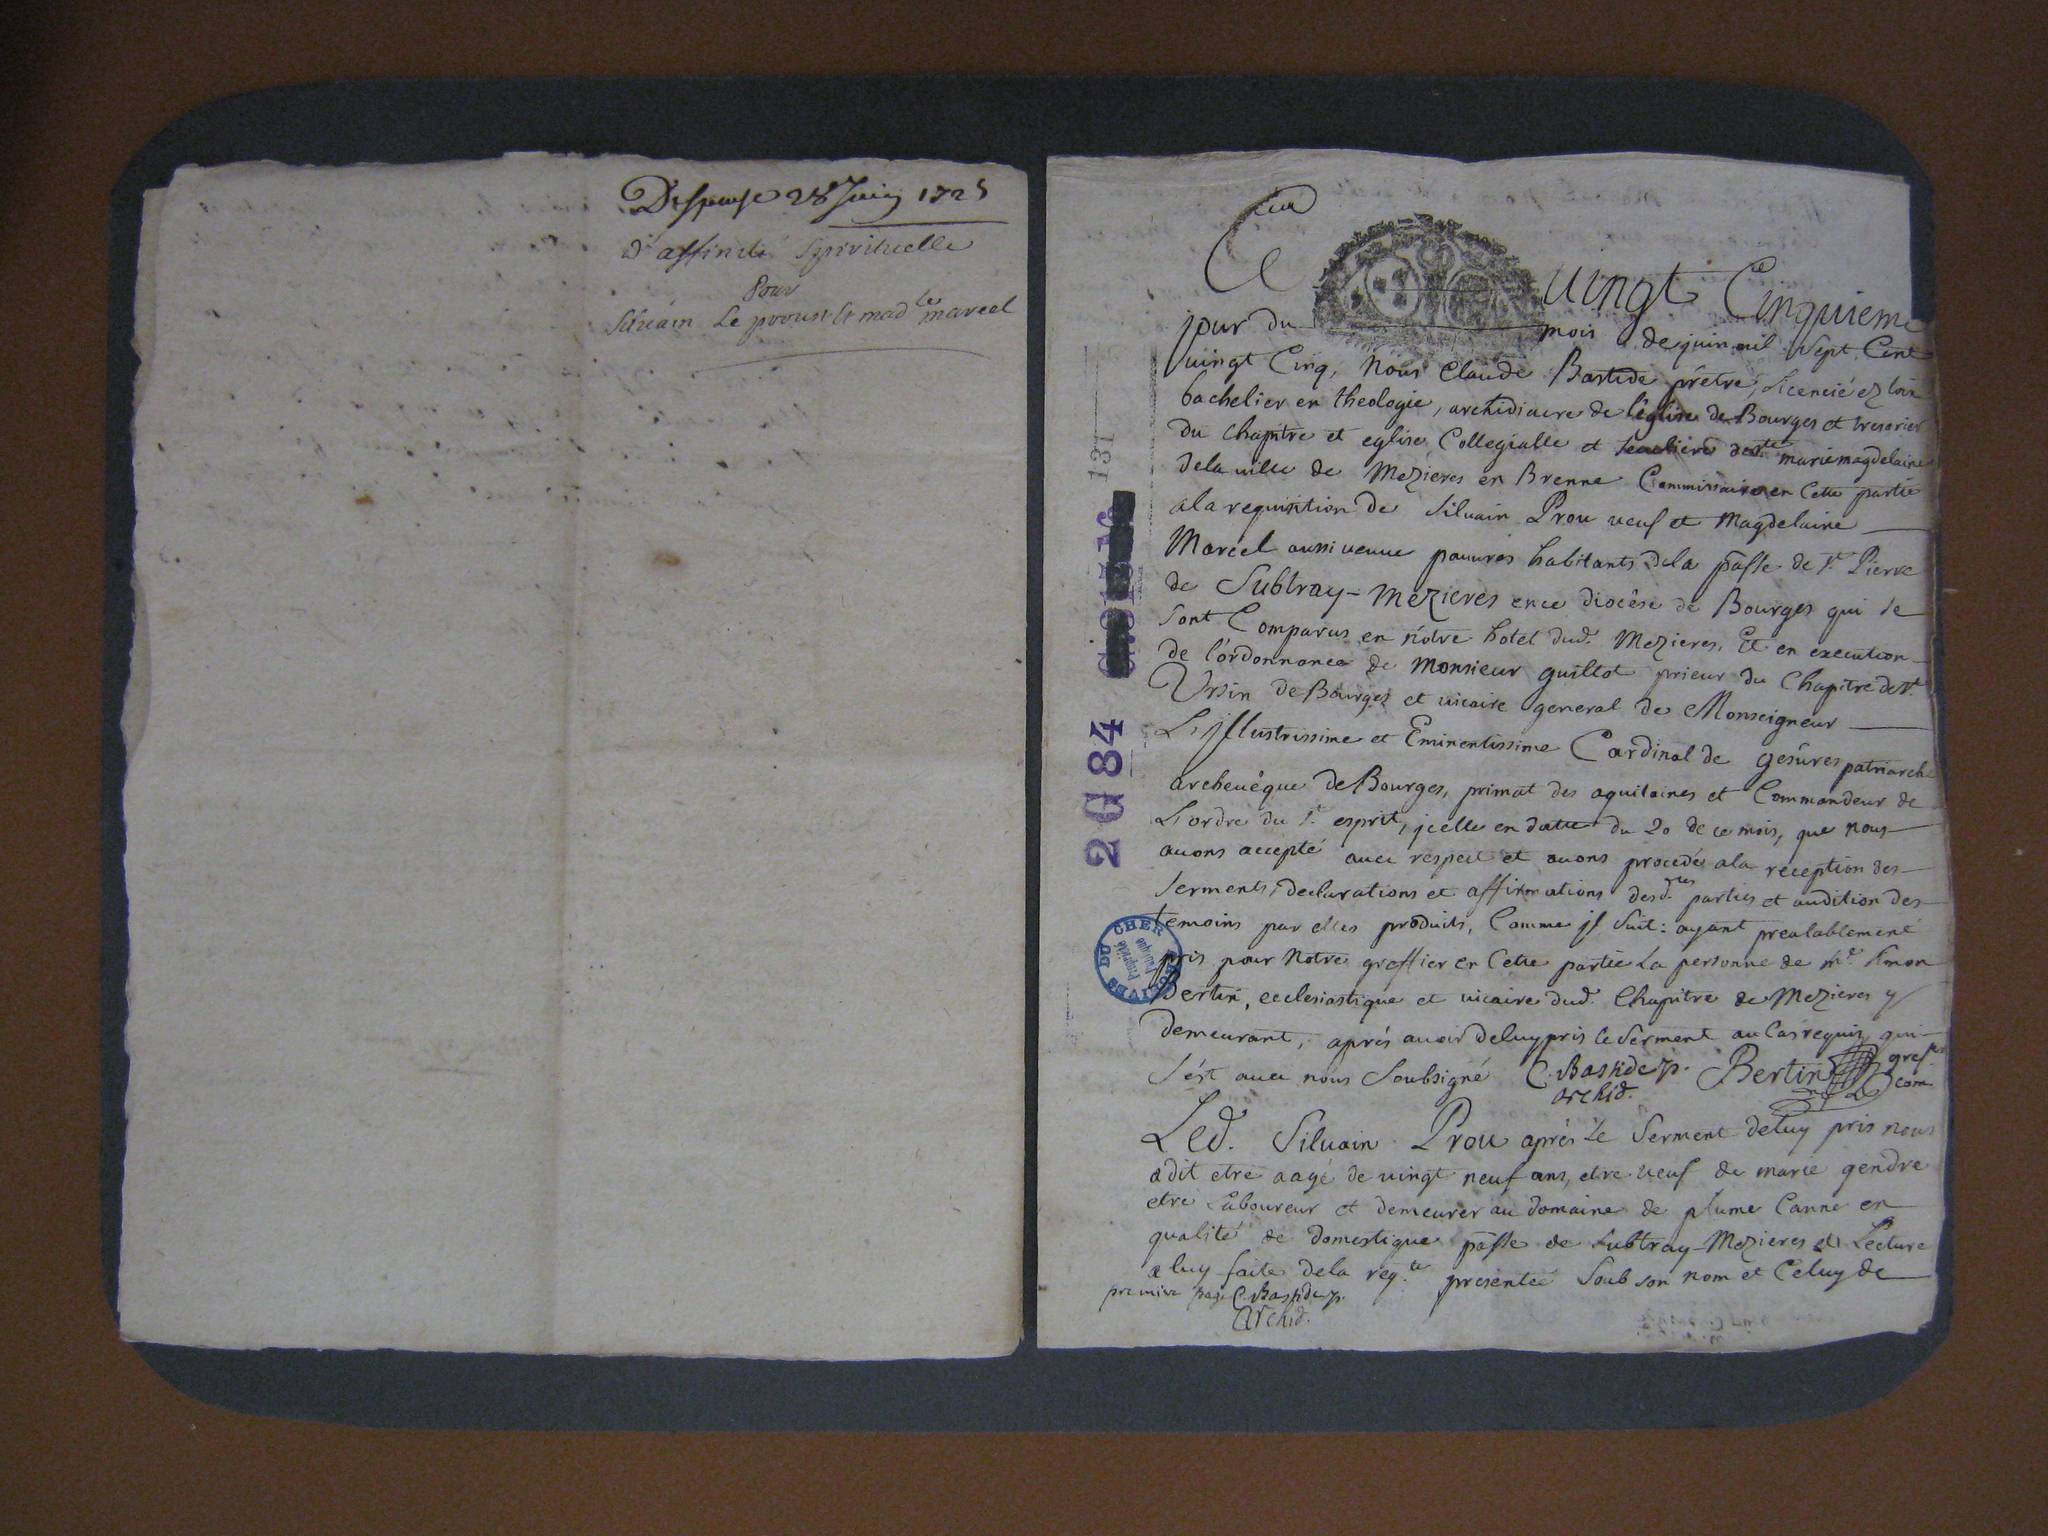 Dispense 28 Juin 1725
d'affinité spirituelle
Pour
Silvain Le proust et mad.le marcel
Ce vingt Cinquieme
jour du mois de juin mil sept Cent
vingt Cinq, Nous Claude Bastide prêtre, licencié ez loix
bachelier en theologie, archidiacre de l'église de Bourges et tresorier
du chapitre et eglise Collegialle et seculiere de ste marie magdelaine
dela ville de Mezieres en Brenne Commissaire en Cette partie
ala requisition de Silvain Prou veuf et Magdelaine
Marcel aussi veuve pauvres habitants dela passe de st Pierre
de Subtray-Mezieres en ce diocése de Bourges qui se
sont Comparus en nôtre hotel dud. Mezieres, Et en execution
de l'ordonnance de Monsieur guillot prieur du Chapitre de st
Ursin de Bourges et vicaire general de Monseigneur
L'jllustrissime et Eminentissime Cardinal de gesvres patriarche
archevêque de Bourges, primat des aquitaines et Commandeur de
L'ordre du st esprit, jcelle en datte du 20 de ce mois, que nous
avons accepté avec respect et avons procedés ala reception des
serments, declarations et affirmations desd. parties et audition des
temoins par elles produits, Comme jl suit: ayant prealablement
pris pour Notre greffier en Cette partie La personne de me Simon
Bertin, ecclesiastique et vicaire dud. Chapitre de Mezieres y
demeurant, aprés avoir deluy pris le serment au Cas requis, qui
s'ést avec nous soubsigné C. Bastide p. Bertin gref.
archid. com.
Led. Silvain Prou aprés le serment deluy pris nous
a dit etre aagé de vingt neuf ans, etre veuf de marie gendre
etre Laboureur et demeurer au domaine de plume Canne en
qualité de domestique passe de Subtray-Mezieres et Lecture
a luy faite dela reqte presentée soub son nom et Celuy de
premiere page C. Bastide p.
Archid.
2 G 84
131
ARCHIVES DU CHER
Propriété
Publique